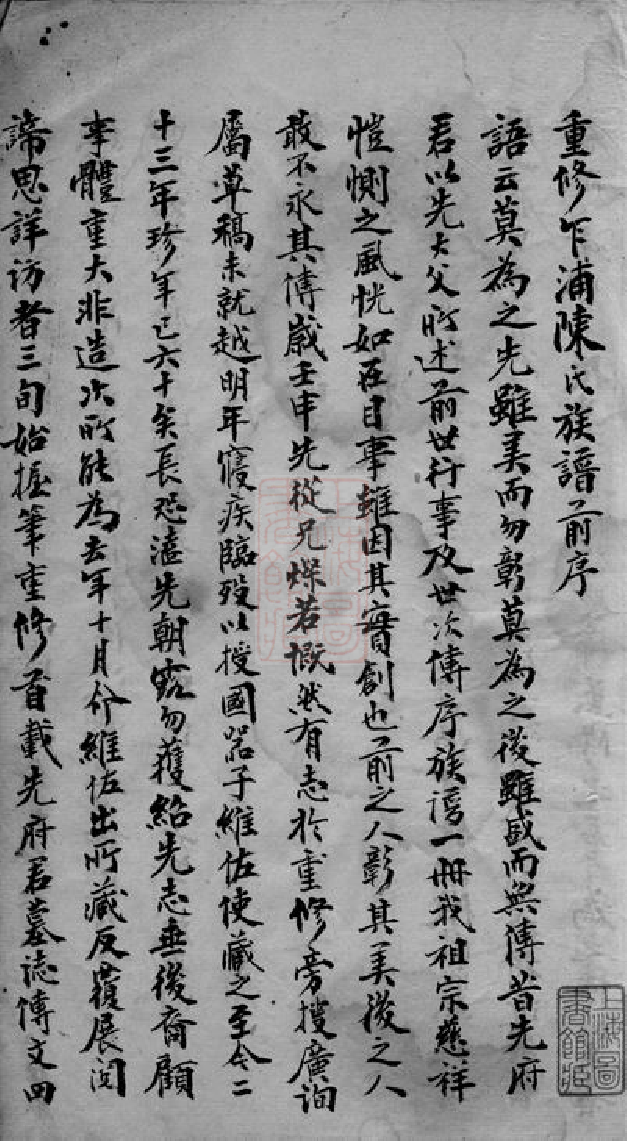 重修乍浦陳氏族譜前序
語云莫為之先雖美而勿彰莫為之後雖盛而無傳昔先府
君以先大父所述前世行事及世次傳序族譜一冊我祖宗慈祥
愷惻之風恍如在目事雖因其實創也前之人彰其美後之人
敢不永其傳嵗壬申先從兄燦若慨然有志於重修旁搜廣詢
屬草稿未就越明年寢疾臨歿以授國器子維佐使藏之至今二
十三年珍年已六十矣長恐溘先朝露勿獲紹先志垂後裔顧
事體重大非造次所能為去年十月命維佐出所藏反覆展閱
諦思詳訪者三旬始握筆重修首載先府君墓誌傳文四
上海圖書館藏
上海圖書館藏